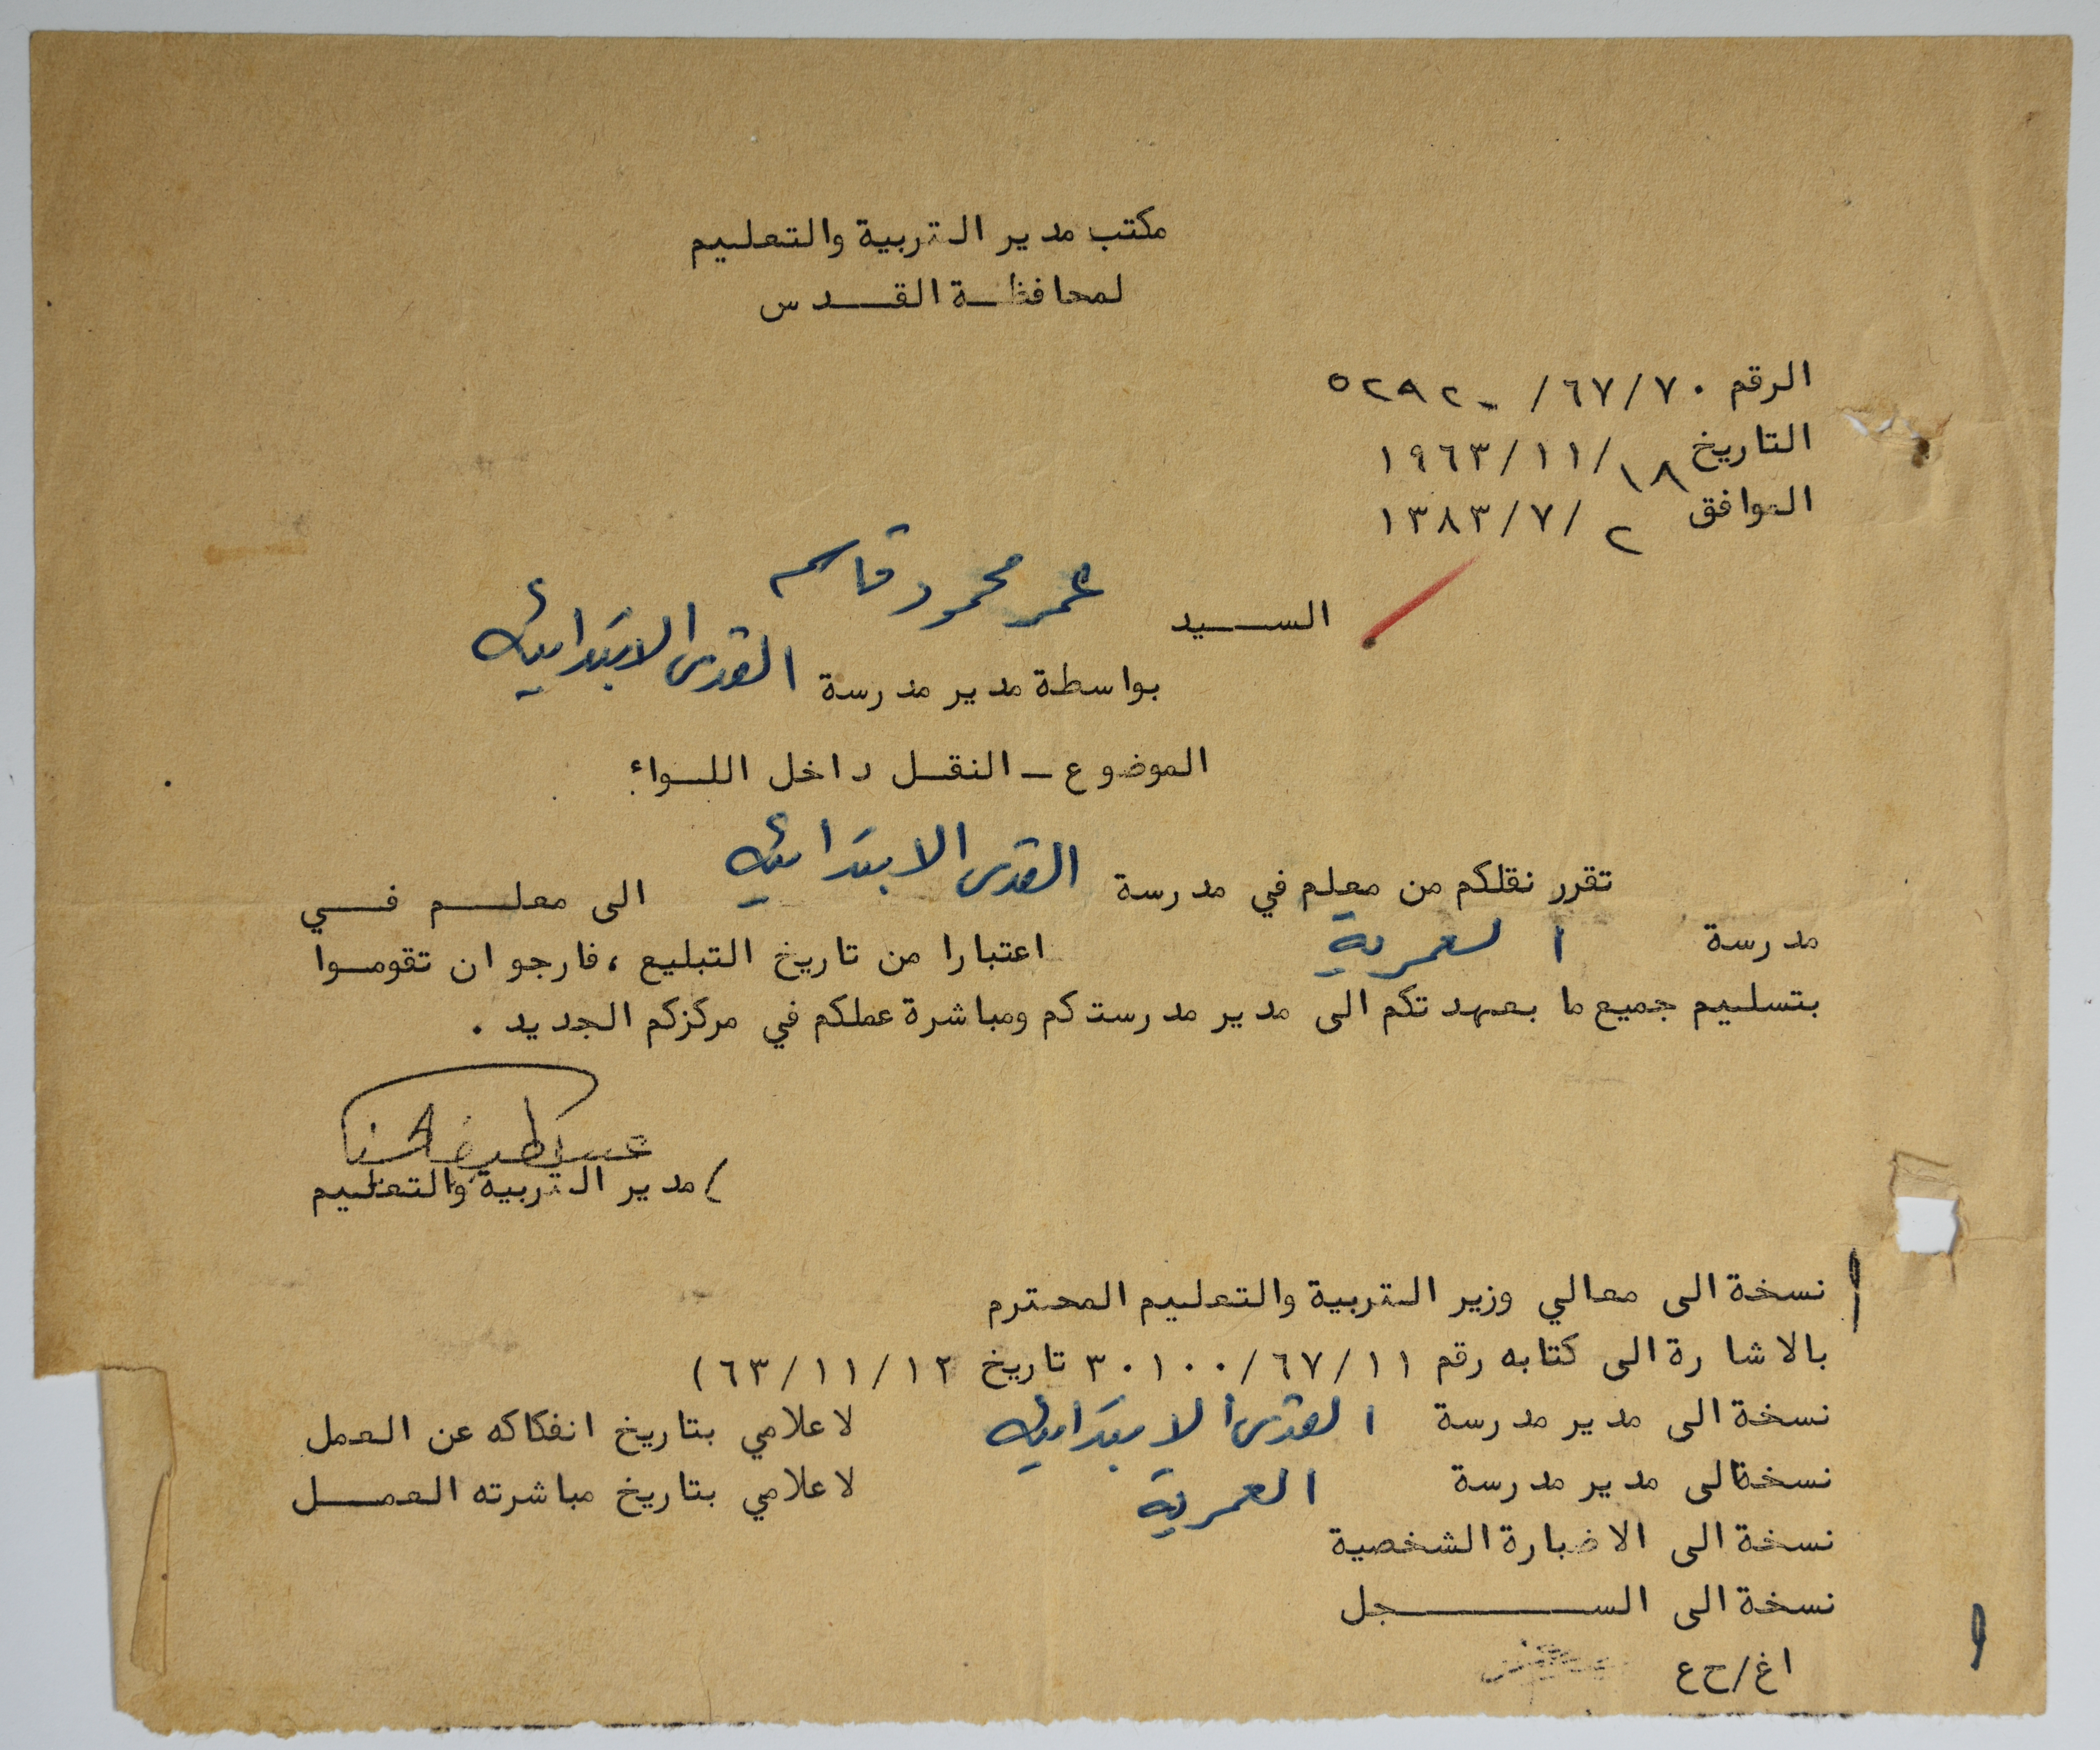 مكتب مدير التربية والتعليم
لمحافظة القدس
الرقم ٦٧/٧٠/ ٥٢٩٢٠
التاريخ ١٩٦٣/١١/١٨
الموافق ١٣٨٣/٧/٢
السيد عمر محمود قاسم
بواسطة مدير مدرسة القدس الابتدائية
الموضوع - النقل داخل اللواء
تقرر نقلكم من معلم في مدرسة القدس الابتدائية الى معلم في
مدرسة العمرية اعتبارا من تاريخ التبليغ ، فارجو ان تقوموا
بتسليم جميع ما بعهدتكم الى مدير مدرستكم ومباشرة عملكم في مركزكم الجديد .
/ مدير التربية والتعليم
نسخة الى معالي وزير التربية والتعليم المحترم
بالاشارة الى كتابه رقم ٣٠١٠٠/٦٧/١١ تاريخ ٦٣/١١/١٢)
نسخة الى مدير مدرسة القدس الابتدائية لاعلامي بتاريخ انفكاكه عن العمل
نسخةالى مدير مدرسة العمرية لاعلامي بتاريخ مباشرته العمل
نسخة الى الاضبارة الشخصية
نسخة الى السجل
اغ/ح ع